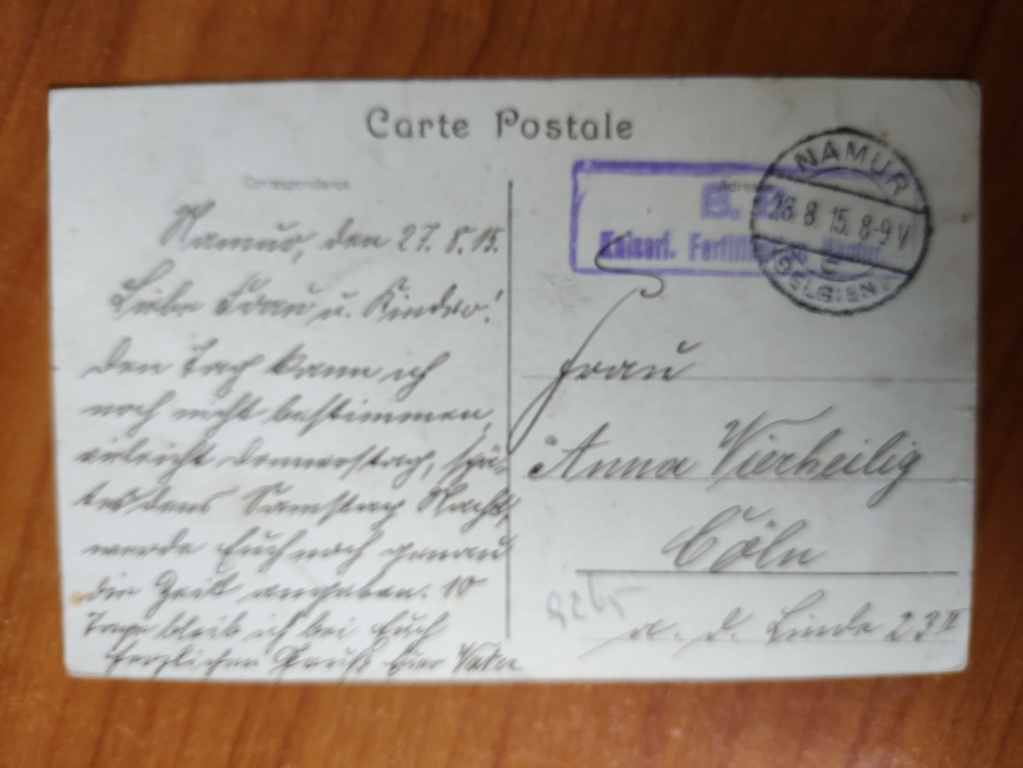 Carte Postale
Correspondance
Adresse
Namur, den 27.8.15.
Liebe Frau u. Kinder!
Den Tag kann ich
noch nicht bestimmen,
vieleicht Donnerstag, spä-
testens Samstag Nacht,
werde Euch noch genau
die Zeit angeben. 10
Tage bleib ich bei Euch
Herzlichen Gruß Euer Vater
Kaiserl. Namur.
NAMUR
28.8.15. 8-9 V
BELGIEN
Frau
Anna Vierheilig
Cöln
a. d. Linde 23 II